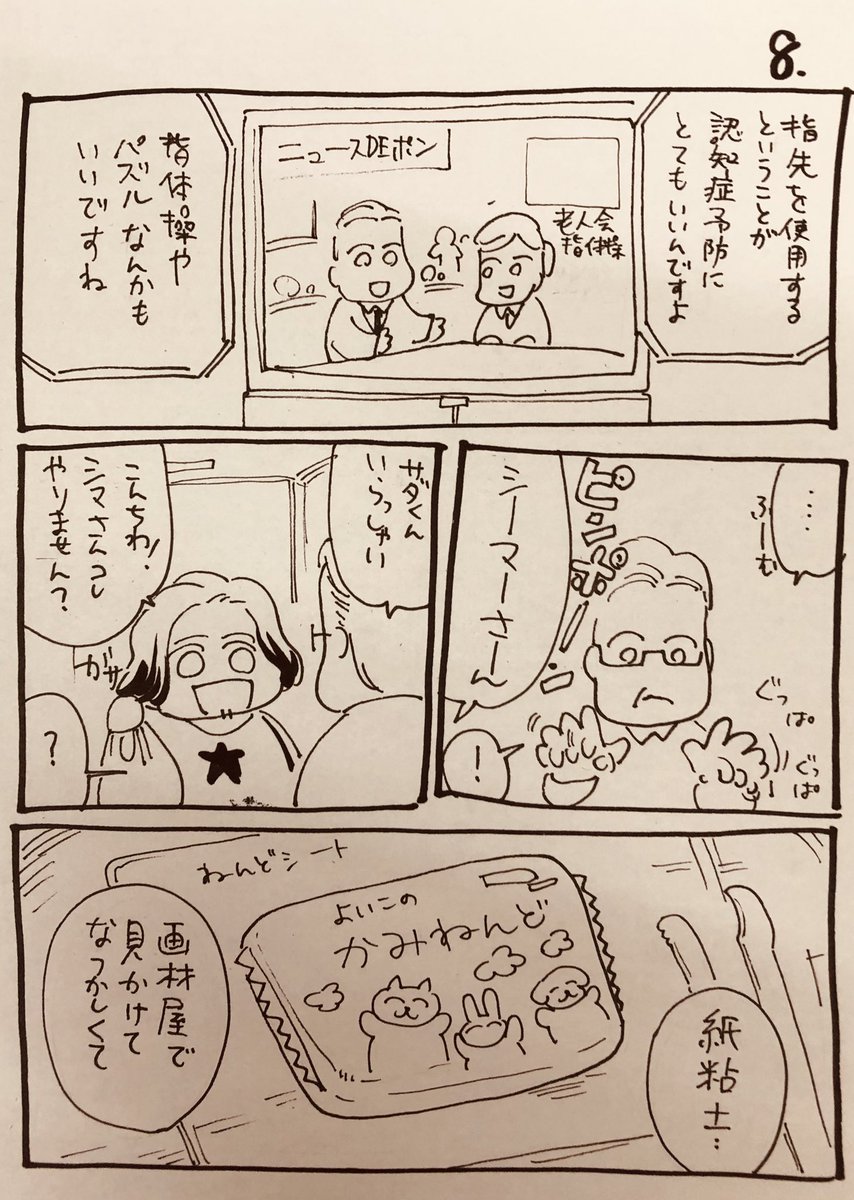 8.
指先を使用する
ということが
認知症予防に
とてもいいんですよ
ニュースDEポン
老人会
指体操
指体操や
パズルなんかも
いいですね
…
ふーむ
ピンポーン
シーマーさーん
ぐっぱ。
ぐっぱ。
!
サダくん
いらっしゃい
こんちわ!
シマさんコレ
やりません?
ガサ
?
ねんどシート
よいこの
かみねんど
紙粘土…
画材屋で
見かけて
なつかしくて